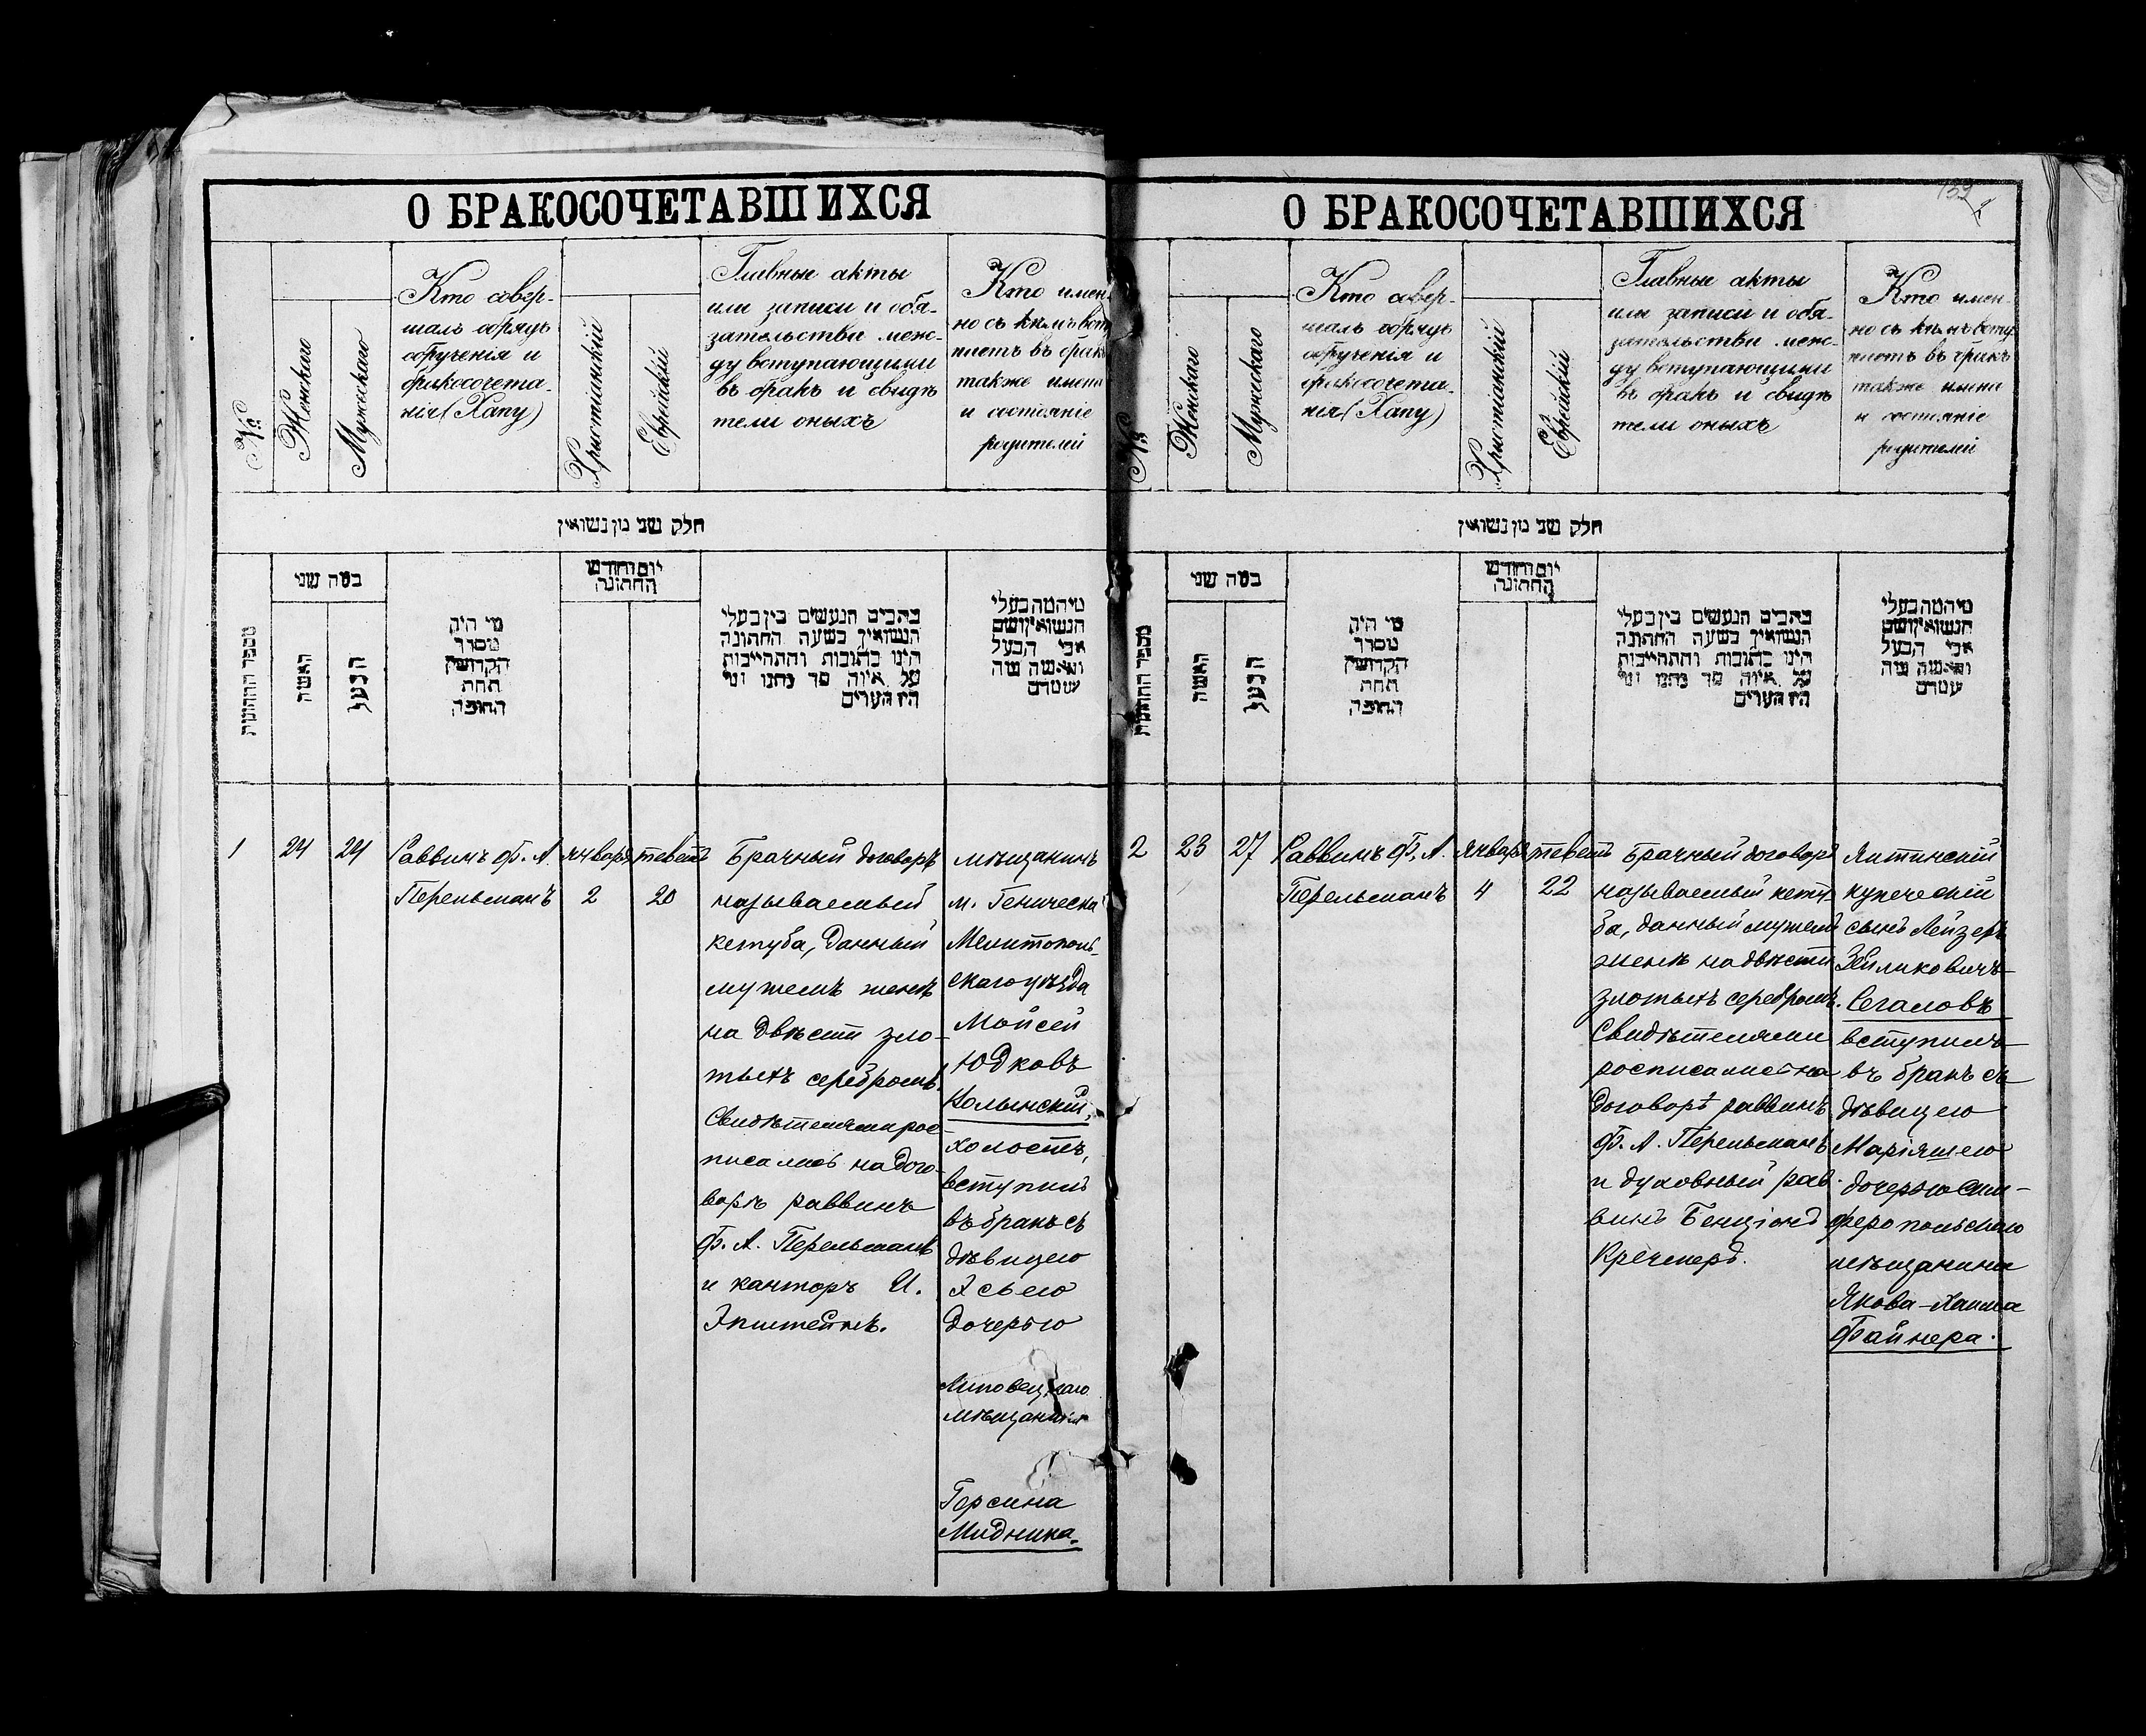 О БРАКОСОЧЕТАВШИХСЯ
№
Женскаго
Мужескаго
Кто совер-
шалъ обрядъ
обрученія и
бракосочета-
нія (Хапу)
Христіанскій
Еврейскій
Главные акты
или записи и обя-
зательства меж-
ду вступающими
въ бракъ и свидѣ
тели оныхъ
Кто имен
но съ кѣмъ вст
паетъ въ бракъ
также имена
и состояніе
родителей
חלק שני מן נשואין
מספר החתונות
כמה שני
האשה
הבעל
מי היה
מסדר
הקדושין
תחת
החופה
יום וחודש
החתונה
כתבים הנעשים בין בעלי
הנשואין בשעה החתונה
הינו כתובות והתחייבות
על איזה סך נתנו ומי
היו העדים
מי המה בעלי
הנשואין ושם
אבי הבעל
והאשה מה
שמם
1
24
24
Раввинъ Ф. А.
Перельманъ
январь
2
теветъ
20
Брачный договоръ
называемый
кетуба, данный
мужемъ женѣ
на двѣсти зло-
тыхъ серебромъ.
Свидѣтелями рос-
писались на дого-
ворѣ раввинъ
Ф. А. Перельманъ
и канторъ И.
Эпштейнъ.
мѣщанинъ
м. Геническа
Мелитополь-
скаго уѣзда
Мойсей
Юдковъ
Колынскій,
холостъ,
вступилъ
въ бракъ съ
дѣвицею
Эсѳею
дочерью
Липовецкаго
мѣщанина
Герсина
Мидника.
О БРАКОСОЧЕТАВШИХСЯ
№
Женскаго
Мужескаго
Кто совер-
шалъ обрядъ
обрученія и
бракосочета-
нія (Хапу)
Христіанскій
Еврейскій
Главные акты
или записи и обя-
зательства меж-
ду вступающими
въ бракъ и свидѣ
тели оныхъ
Кто имен-
но съ кѣмъ всту
паетъ въ бракъ
также имена
и состояніе
родителей
חלק שני מן נשואין
מספר החתונות
כמה שני
האשה
הבעל
מי היה
מסדר
הקדושין
תחת
החופה
יום וחודש
החתונה
כתבים הנעשים בין בעלי
הנשואין בשעה החתונה
הינו כתובות והתחייבות
על איזה סך נתנו ומי
היו העדים
מי המה בעלי
הנשואין ושם
אבי הבעל
והאשה מה
שמם
2
23
27
Раввинъ Ф. А.
Перельманъ
январь
4
теветъ
22
Брачный договоръ
называемый кету-
ба, данный мужемъ
женѣ на двѣсти
злотыхъ серебромъ.
Свидѣтелями
росписались на
договорѣ раввинъ
Ф. А. Перельманъ
и духовный рав-
винъ Бенціонъ
Кречмеръ.
Ялтинскій
купеческій
сынъ Лейзеръ
Зейликовичъ
Сегаловъ
вступилъ
въ бракъ съ
дѣвицею
Маріяшею
дочерью Сим-
феропольскаго
мѣщанина
Якова-Хаима
Файнера.